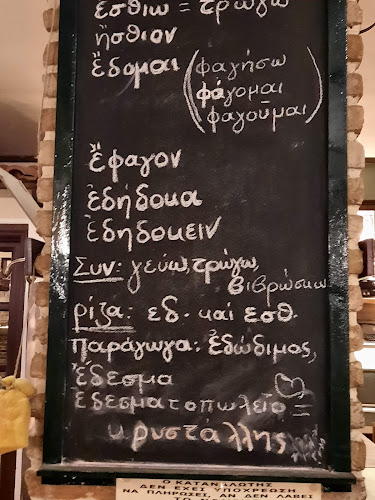 ἐσθίω = τρώγω
ἤσθιον
ἔδομαι (φαγήσω
φάγομαι
φαγοῦμαι)
ἔφαγον
ἐδήδοκα
ἐδηδοκειν
Συν: γεύω, τρώγω
βιβρώσκω
ρίζα: εδ- και εσθ-
παράγωγα: ἐδώδιμος,
ἔδεσμα
ἐδεσματοπωλεῖο =
κρυστάλλης
Ο ΚΑΤΑΝΑΛΩΤΗΣ
ΔΕΝ ΕΧΕΙ ΥΠΟΧΡΕΩΣΗ
ΝΑ ΠΛΗΡΩΣΕΙ, ΑΝ ΔΕΝ ΛΑΒΕΙ